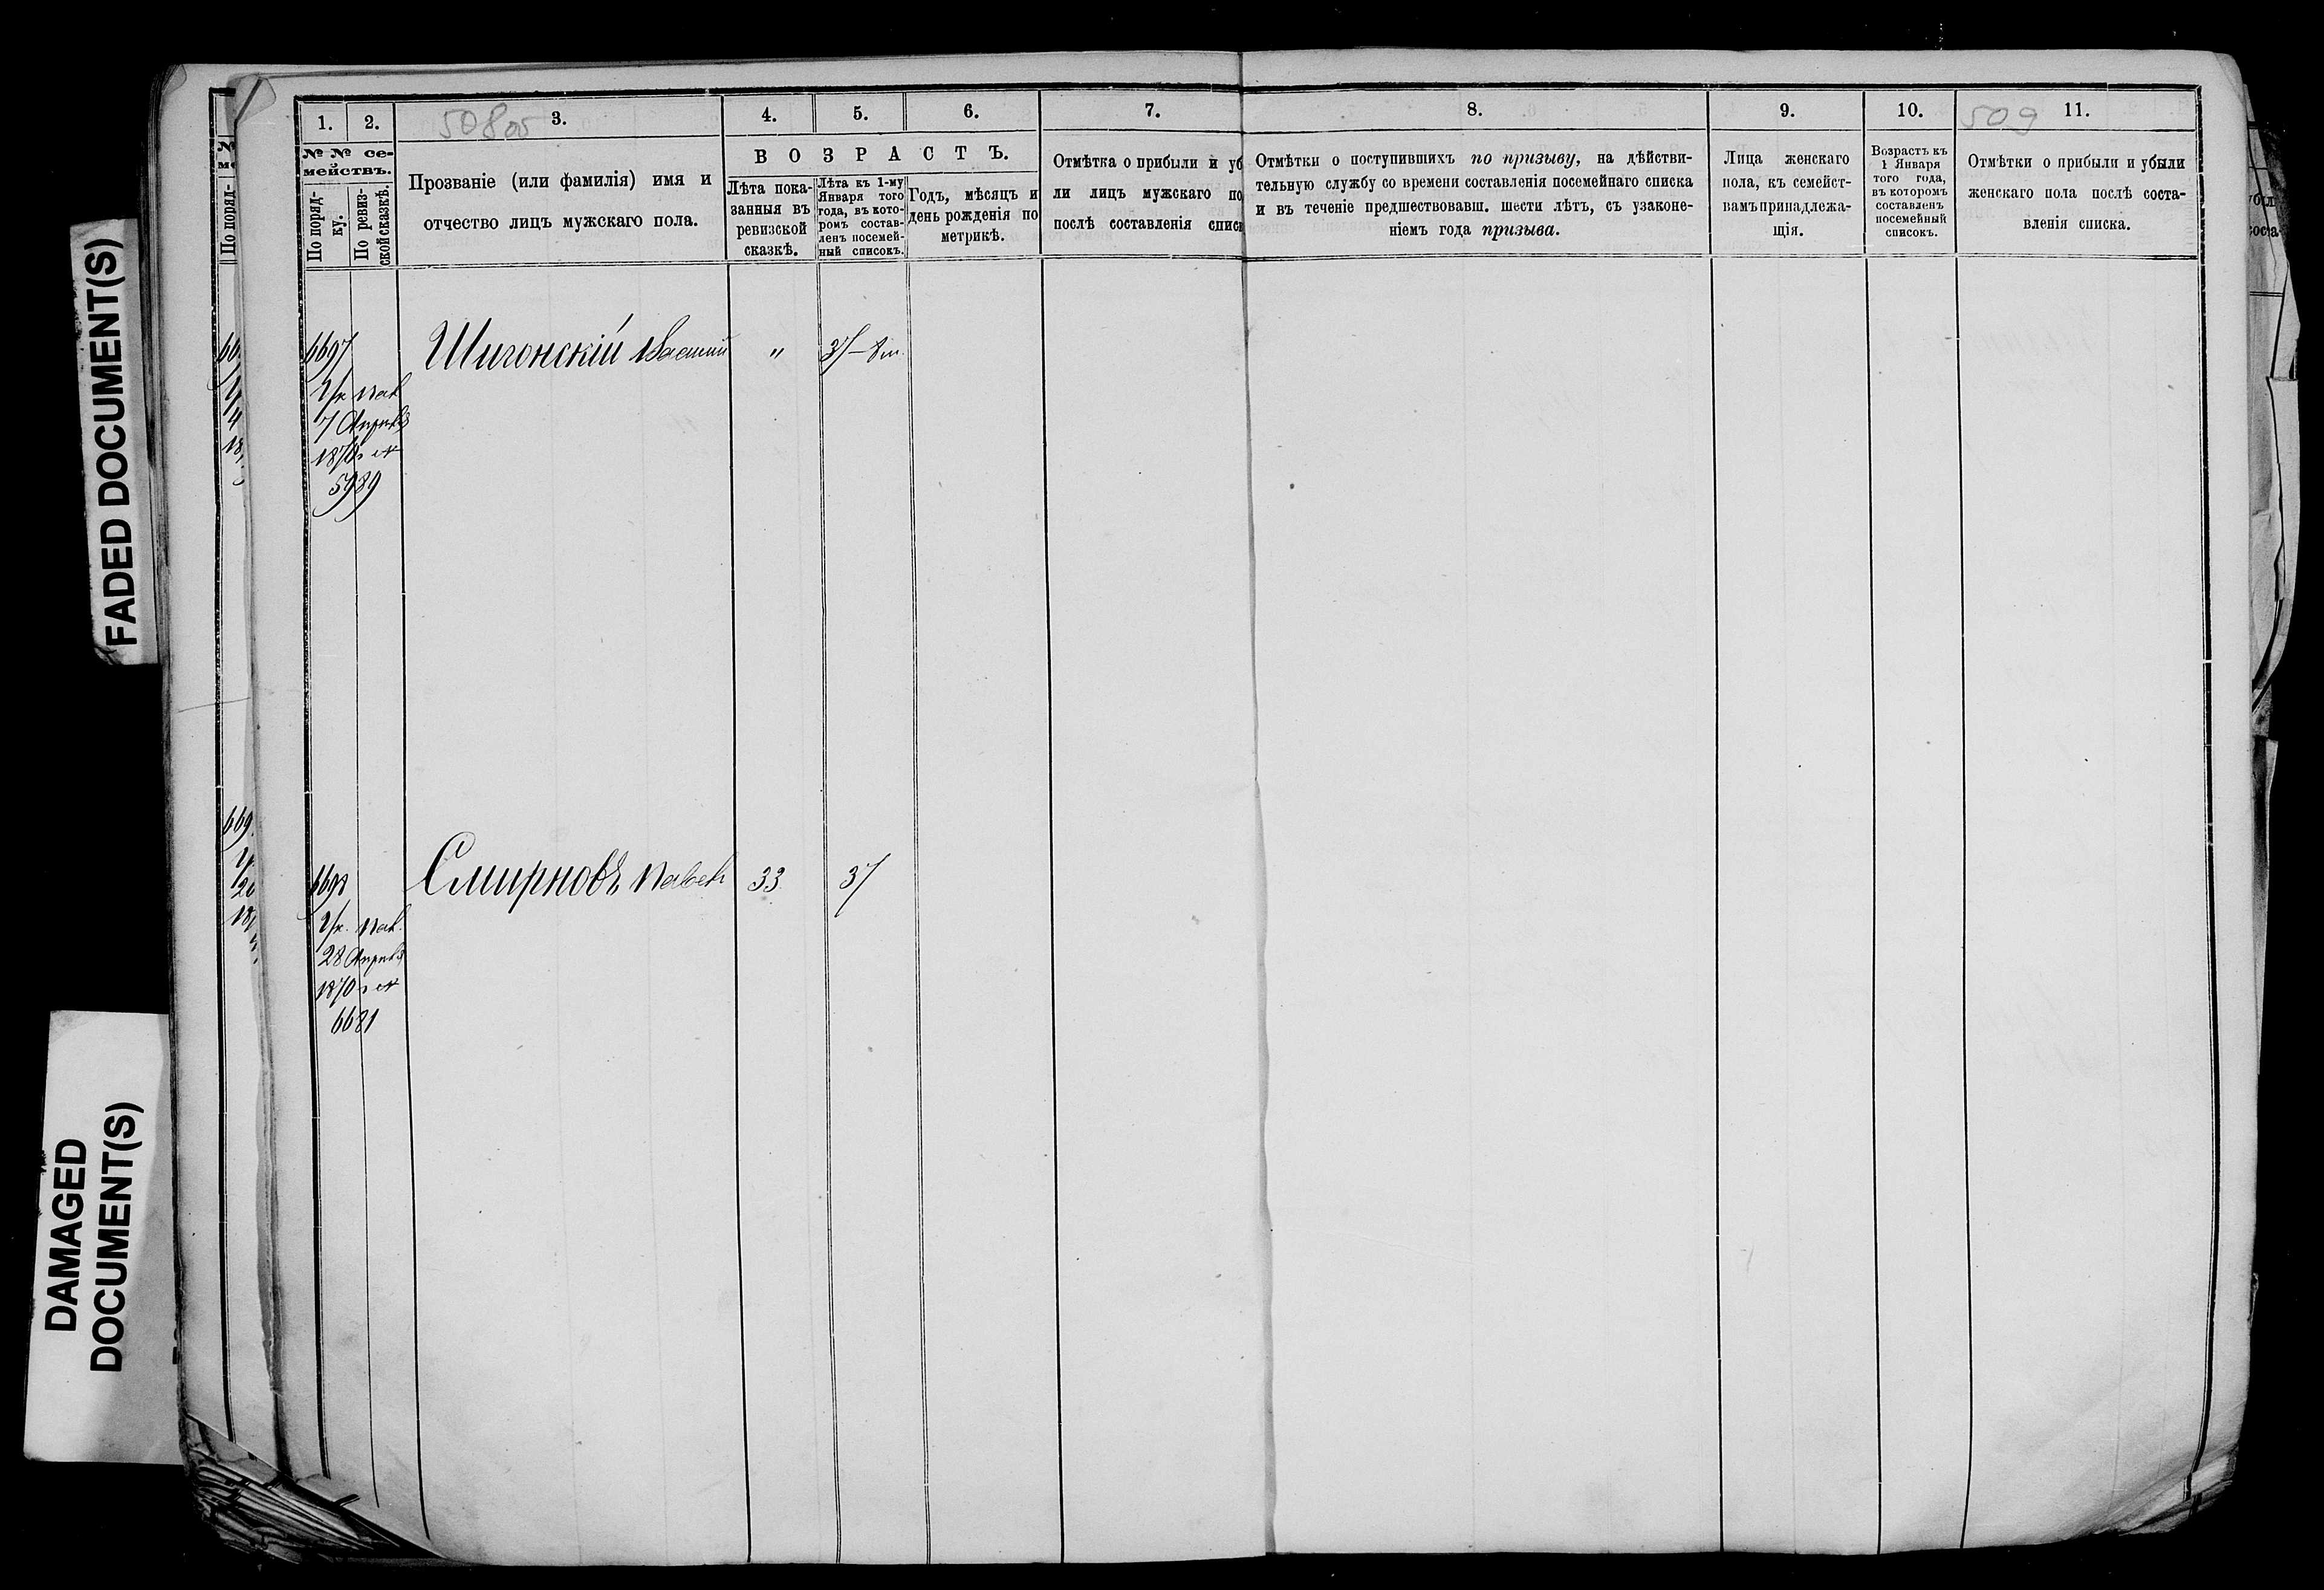 FADED DOCUMENT(S)
DAMAGED
DOCUMENT(S)
1. 2. 508об 3. 4. 5. 6. 7. 8. 9. 10. 509 11.
№ № се-
мействъ.
По поряд-
ку.
По ревиз-
ской сказкѣ.
Прозваніе (или фамилія) имя и
отчество лицъ мужскаго пола.
ВОЗРАСТЪ.
Лѣта пока-
занныя въ
ревизской
сказкѣ.
Лѣта къ 1-му
Января того
года, въ кото-
ромъ состав-
ленъ посемей-
ный списокъ.
Годъ, мѣсяцъ и
день рожденія по
метрикѣ.
Отмѣтка о прибыли и уб
ли лицъ мужскаго по
послѣ составленія списк
Отмѣтки о поступившихъ по призыву, на дѣйстви-
тельную службу со времени составленія посемейнаго списка
и въ теченіе предшествовавш. шести лѣтъ, съ узаконе-
ніемъ года призыва.
Лица женскаго
пола, къ семейст-
вамъ принадлежа-
щія.
Возрастъ къ
1 Января
того года,
въ которомъ
составленъ
посемейный
списокъ.
Отмѣтки о прибыли и убыли
женскаго пола послѣ соста-
вленія списка.
6697 Шигонскій „ 37
7 Апрѣля
1870 г №
5989
6698 Смирновъ Павелъ 33 37
28 Апрѣля
1870 г №
6681